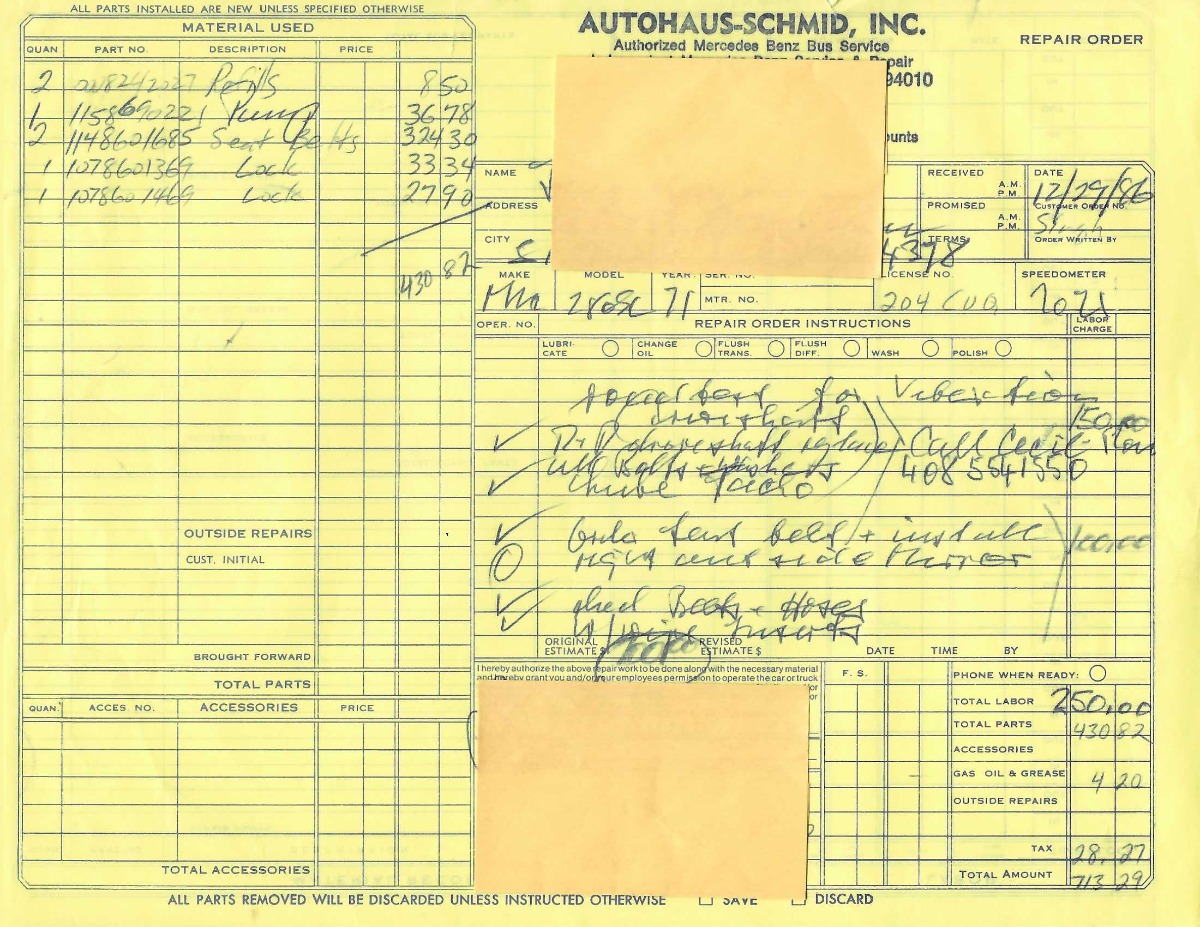 ALL PARTS INSTALLED ARE NEW UNLESS SPECIFIED OTHERWISE
MATERIAL USED
QUAN PART NO. DESCRIPTION PRICE
2 Refills 8 50
1 1158690221 Pump 36 78
2 1148601685 Seat Belts 324 30
1 1078601369 Lock 33 34
1 1078601469 Lock 27 90
430 82
OUTSIDE REPAIRS
CUST. INITIAL
BROUGHT FORWARD
TOTAL PARTS
QUAN. ACCES. NO. ACCESSORIES PRICE
TOTAL ACCESSORIES
AUTOHAUS-SCHMID, INC.
Authorized Mercedes Benz Bus Service
Repair
94010
REPAIR ORDER
NAME
ADDRESS
CITY
RECEIVED A.M. P.M.
PROMISED A.M. P.M.
TERMS
4378
DATE 12/29/86
CUSTOMER ORDER NO.
Singh
ORDER WRITTEN BY
MAKE MODEL YEAR SER. NO. LICENSE NO. SPEEDOMETER
71 MTR. NO. 204 CUQ
OPER. NO. REPAIR ORDER INSTRUCTIONS LABOR CHARGE
LUBRI-CATE CHANGE OIL FLUSH TRANS. FLUSH DIFF. WASH POLISH
road test for Vibration
driveshaft 150.00
driveshaft Call Cecil
408 5541550
lube Tacho
seat belt + install 100.00
right out side Mirror
Belts + Hoses
Wiper Inserts
ORIGINAL ESTIMATE $ REVISED ESTIMATE $ DATE TIME BY
I hereby authorize the above repair work to be done along with the necessary material
and hereby grant you and/or your employees permission to operate the car or truck
F. S.
PHONE WHEN READY:
TOTAL LABOR 250.00
TOTAL PARTS 430 82
ACCESSORIES
GAS OIL & GREASE 4 20
OUTSIDE REPAIRS
TAX 28.27
TOTAL AMOUNT 713 29
ALL PARTS REMOVED WILL BE DISCARDED UNLESS INSTRUCTED OTHERWISE SAVE DISCARD